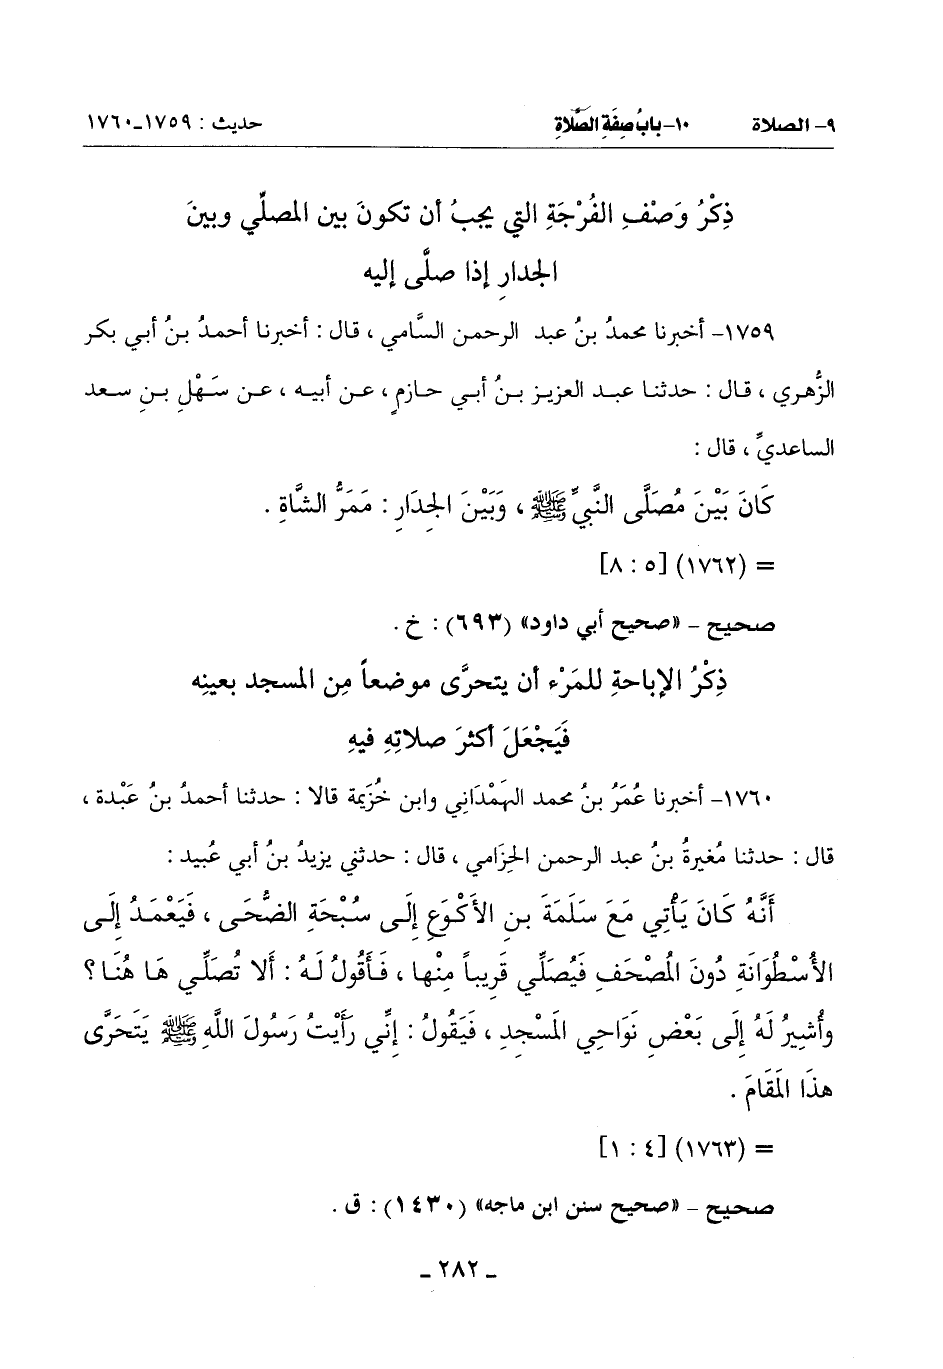 ٩- الصلاة ١٠- بابُ صِفَةِ الصَّلاةِ حديث : ١٧٥٩-١٧٦٠
ذِكْرُ وَصْفِ الفُرْجَةِ التي يجبُ أن تكونَ بين المصلِّي وبينَ
الجدارِ إذا صلَّى إليه
١٧٥٩- أخبرنا محمدُ بنُ عبد الرحمن السَّامي ، قال : أخبرنا أحمدُ بنُ أبي بكر
الزُّهري ، قال : حدثنا عبد العزيز بنُ أبي حازمٍ ، عن أبيه ، عن سَهْلِ بنِ سعد
الساعديِّ ، قال :
كَانَ بَيْنَ مُصَلَّى النَّبيِّ ﷺ ، وَبَيْنَ الجِدَارِ : مَمَرُّ الشَّاةِ .
= (١٧٦٢) [٥ : ٨]
صحيح - «صحيح أبي داود» (٦٩٣) : خ .
ذِكْرُ الإباحةِ للمَرْء أن يتحرَّى موضعاً مِن المسجد بعينِه
فَيَجْعَلَ أكثرَ صلاتِهِ فيهِ
١٧٦٠- أخبرنا عُمَرُ بنُ محمد الهَمْدَاني وابن خُزَيمة قالا : حدثنا أحمدُ بنُ عَبْدة ،
قال : حدثنا مُغيرةُ بنُ عبد الرحمن الحِزَامي ، قال : حدثني يزيدُ بنُ أبي عُبيد :
أَنَّهُ كَانَ يَأْتِي مَعَ سَلَمَةَ بنِ الأَكْوَعِ إِلَى سُبْحَةِ الضُّحَى ، فَيَعْمَدُ إِلَى
الأُسْطُوَانَةِ دُونَ المُصْحَفِ فَيُصَلِّي قَرِيباً مِنْها ، فَأَقُولُ لَهُ : أَلا تُصَلِّي هَا هُنَا ؟
وأُشِيرُ لَهُ إِلَى بَعْضِ نَوَاحِي المَسْجِدِ ، فَيَقُولُ : إِنِّي رَأَيْتُ رَسُولَ اللَّهِ ﷺ يَتَحَرَّى
هذَا المَقَامَ .
= (١٧٦٣) [٤ : ١]
صحيح - «صحيح سنن ابن ماجه» (١٤٣٠) : ق .
- ٢٨٢ -